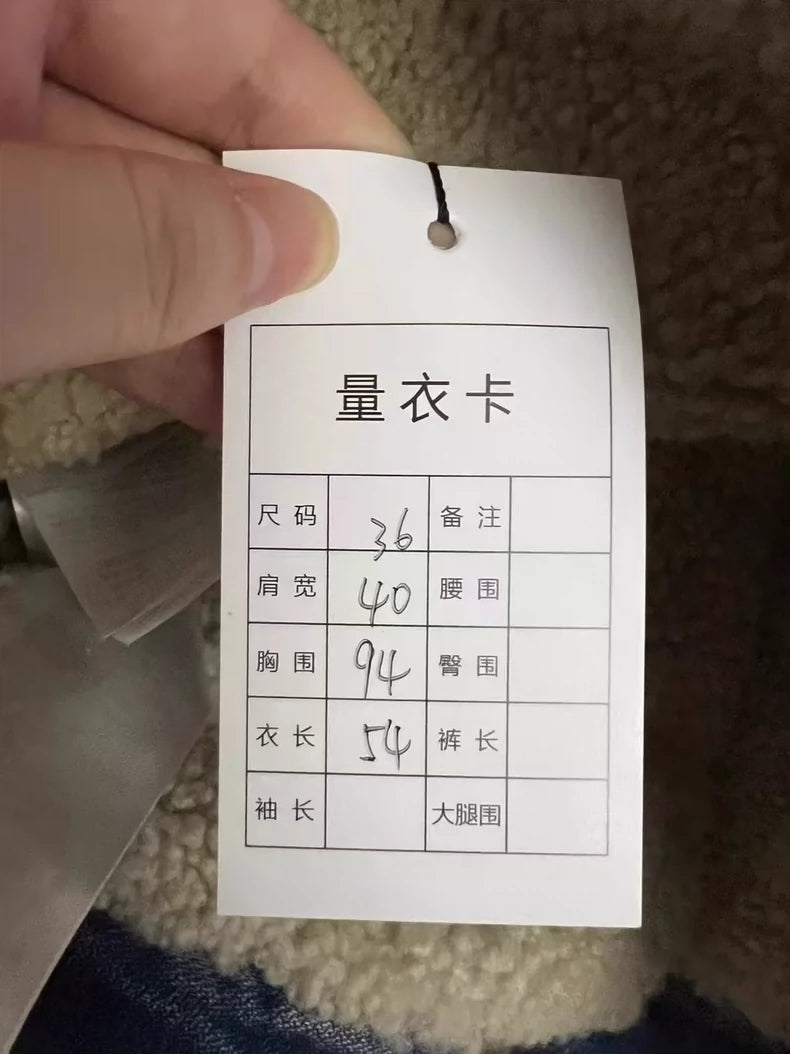 量衣卡
尺码 36 备注
肩宽 40 腰围
胸围 94 臀围
衣长 54 裤长
袖长 大腿围